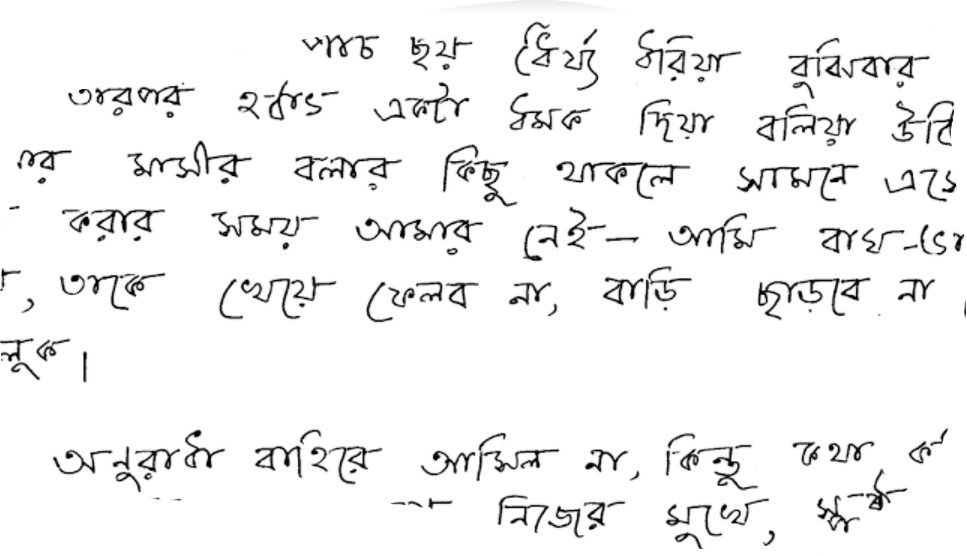 পাঁচ ছয় ধৈর্য্য ধরিয়া বুঝিবার
তারপর হঠাৎ একটা ধমক দিয়া বলিয়া
মাসীর বলার কিছু থাকলে সামনে এসে
করার সময় আমার নেই— আমি বাঘ-
, তাকে খেয়ে ফেলব না, বাড়ি ছাড়বে না
অনুরাধা বাহিরে আসিল না, কিন্তু কথা
নিজের মুখে, স্পষ্ট